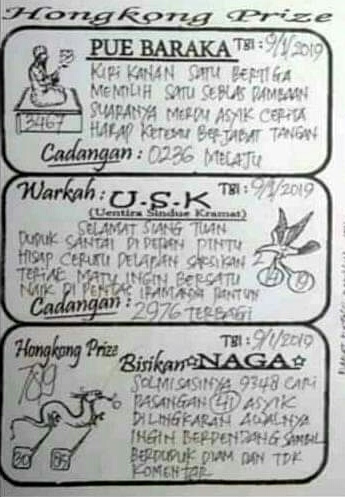 Hongkong Prize
PUE BARAKA Tgl : 9/1/2019
KIRI KANAN SATU BERTIGA
MEMILIH SATU SEBLAS DAMBAAN
SUARANYA MERDU ASYIK CERITA
HARAP KETEMU BERJABAT TANGAN
3467
Cadangan : 0236 MELAJU
Warkah : U-S-K Tgl : 9/1/2019
(Uentira Sindue Kramat)
SELAMAT SIANG TUAN
DUDUK SANTAI DI DEPAN PINTU
HISAP CERUTU DELAPAN SAKSIKAN
TERIAK MATU INGIN BERSATU
NAIK DI PENTAS IRAMANYA PANTUN
Cadangan : 2976 TERBAGI
2
19
Hongkong Prize Tgl : 9/1/2019
Bisikan NAGA
789
SOLMISASINYA 9348 CARI
PASANGAN 41 ASYIK
DILINGKARAN AWALNYA
INGIN BERDENDANG SAMBIL
BERDUDUK DIAM DAN TDK
KOMENTAR